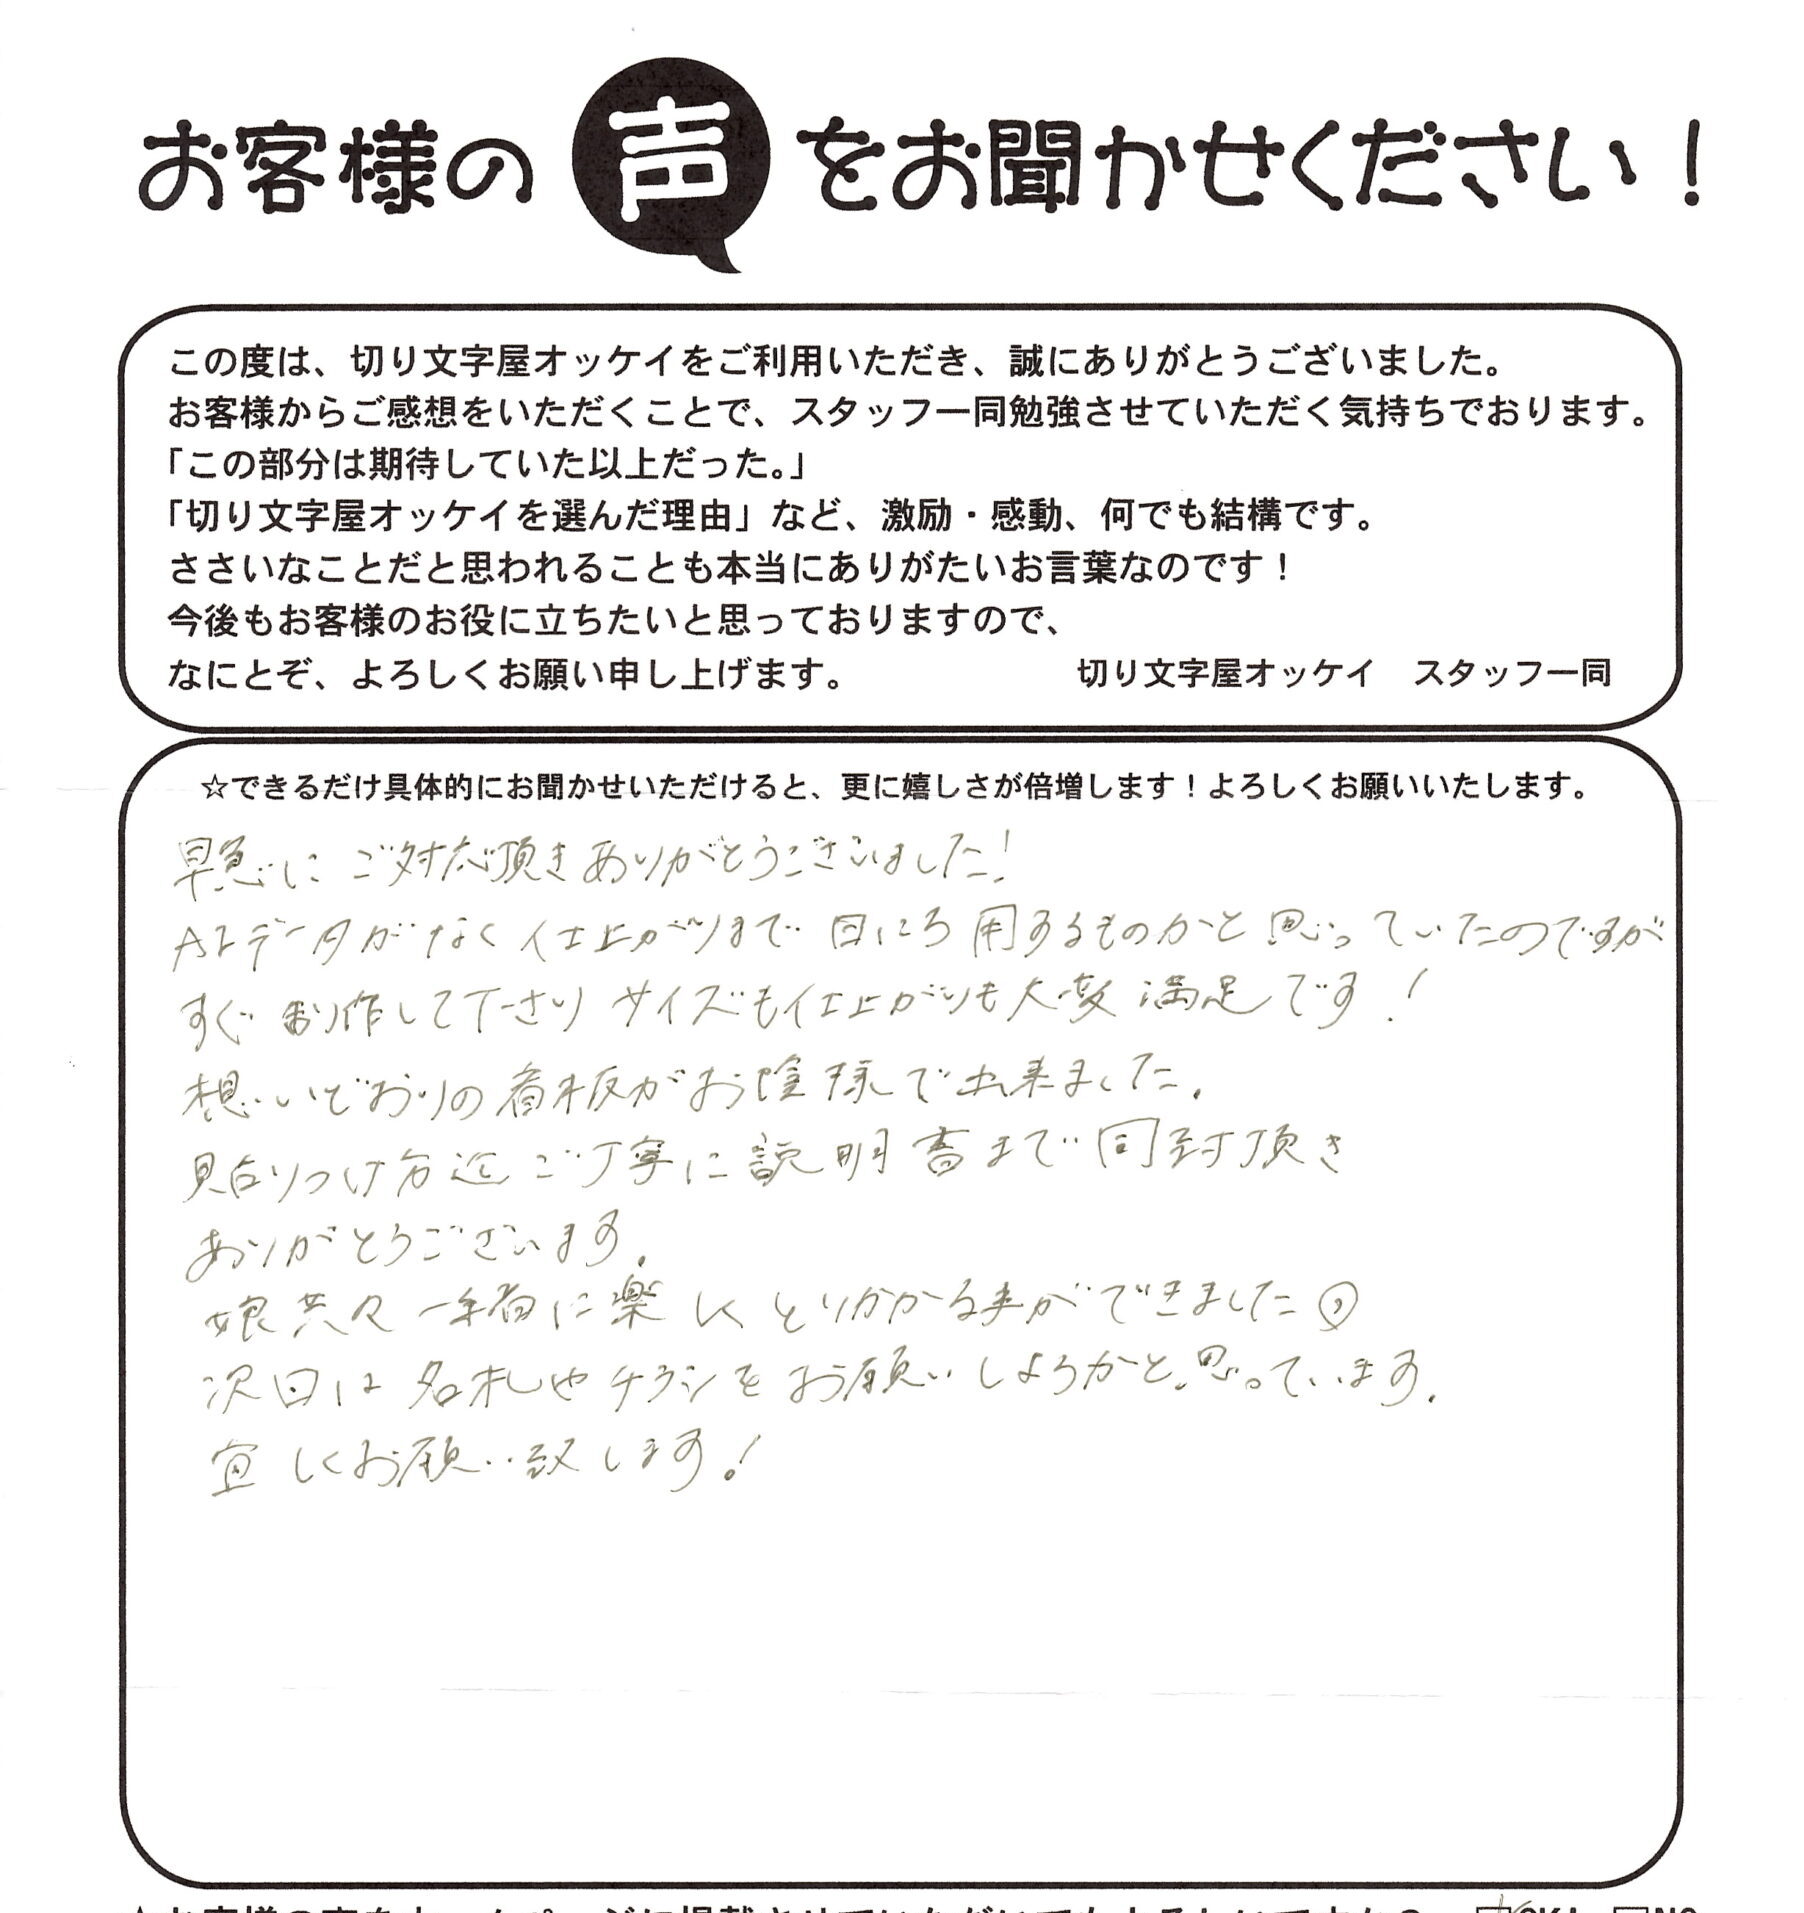 お客様の声をお聞かせください！
この度は、切り文字屋オッケイをご利用いただき、誠にありがとうございました。
お客様からご感想をいただくことで、スタッフ一同勉強させていただく気持ちでおります。
「この部分は期待していた以上だった。」
「切り文字屋オッケイを選んだ理由」など、激励・感動、何でも結構です。
ささいなことだと思われることも本当にありがたいお言葉なのです！
今後もお客様のお役に立ちたいと思っておりますので、
なにとぞ、よろしくお願い申し上げます。
切り文字屋オッケイ　スタッフ一同
☆できるだけ具体的にお聞かせいただけると、更に嬉しさが倍増します！よろしくお願いいたします。
早急にご対応頂きありがとうございました！
AIデータがなく仕上がりまで日にち用するものかと思っていたのですが
すぐ制作して下さりサイズも仕上がりも大変満足です！
想いどおりの看板がお陰様で出来ました。
貼りつけ方迄ご丁寧に説明書まで同封頂き
ありがとうございます。
娘共々一緒に楽しくとりかかる事ができました
次回は名札やチラシをお願いしようかと思っています。
宜しくお願い致します！